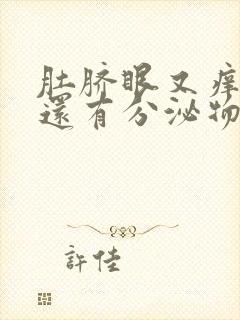 肚脐眼又痒
還有分泌物
許佳